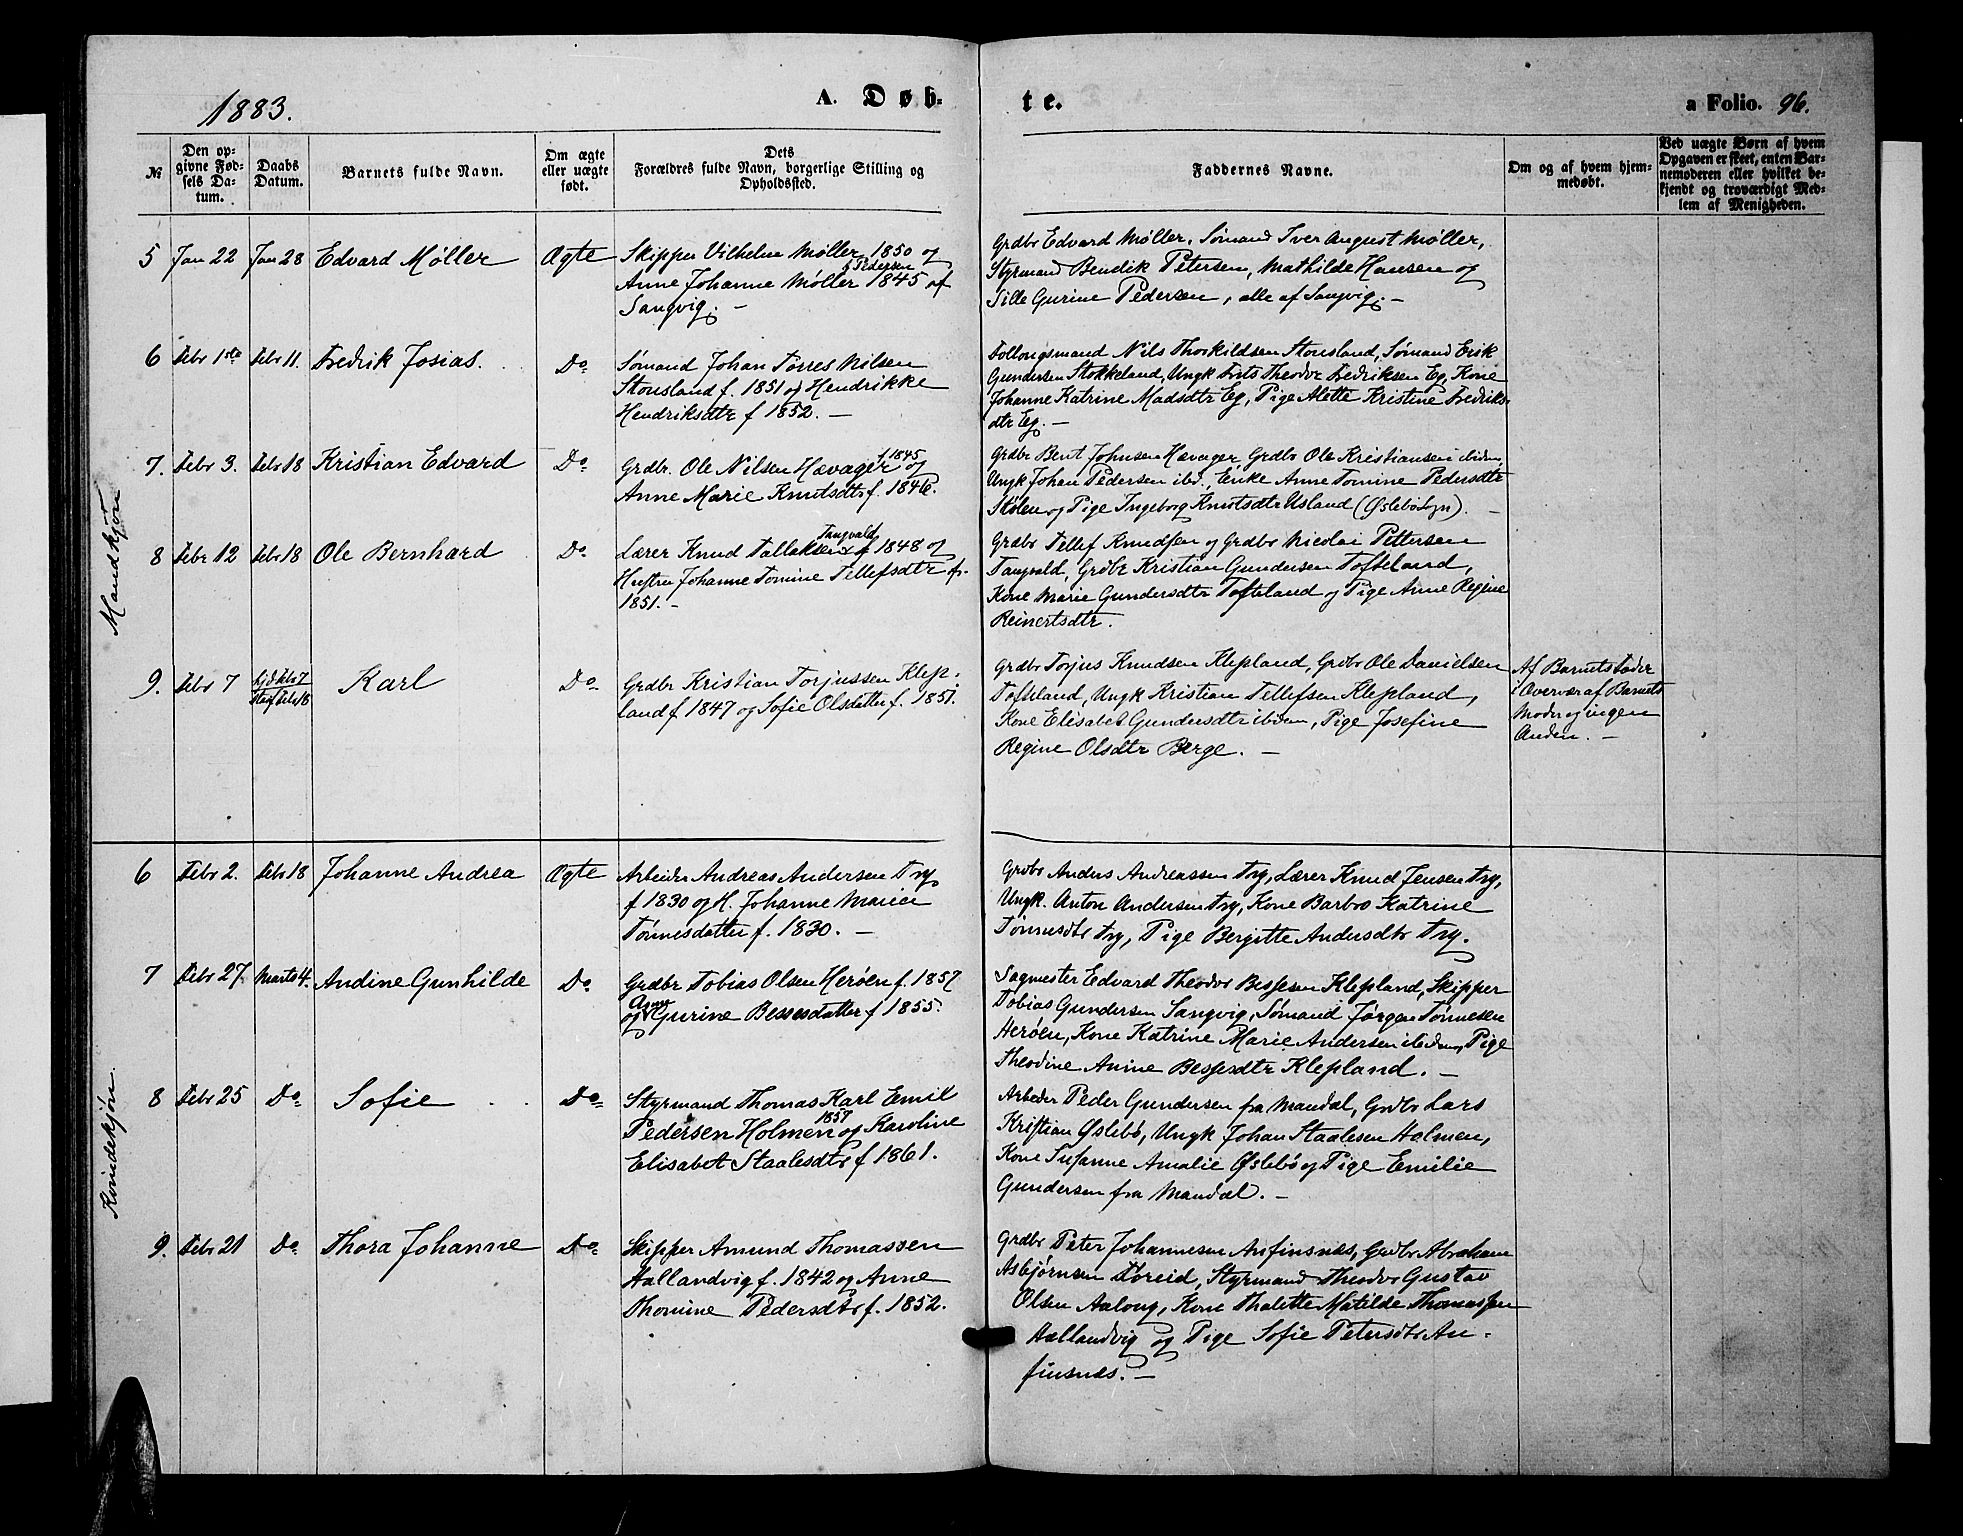 1883.
A. Døb-
te.
a Folio. 96.
№
Den op-
givne Fød-
sels Da-
tum.
Daabs
Datum.
Barnets fulde Navn.
Om ægte
eller uægte
født.
Dets
Forældres fulde Navn, borgerlige Stilling og
Opholdssted.
Faddernes Navne.
Om og af hvem hjem-
medøbt.
Ved uægte Børn af hvem
Opgaven er skeet, enten Bar-
nemoderen eller hvilket be-
kjendt og troværdigt Med-
lem af Menigheden.
Mandkjøn
5 Jan 22 Jan 28 Edvard Møller Ægte
Skipper Vilhelm Møller 1850 og
f Pedersen
Anne Johanne Møller 1845 af
Sangvig. -
Grdbr Edvard Møller, Sømand Iver August Møller,
Styrmand Bendik Petersen, Mathilde Hansen og
Sille Gurine Pedersen, alle af Sangvig. -
6 Febr 1ste Febr 11. Fredrik Josias. Do
Sømand Johan Tørres Nilsen
Stousland f. 1851 og Hendrikke
Hendriksdtr f 1852. -
Follougsmand Nils Thorkildsen Stousland, Sømand Erik
Gundersen Stokkeland, Ungk Frits Theodor Fredriksen Eg, Kone
Johanne Katrine Madsdtr Eg, Pige Alette Kristine Fredriks-
dtr Eg. -
7. Febr 3. Febr 18 Kristian Edvard Do
f 1845
Grdbr. Ole Nilsen Hævager og
Anne Marie Knutsdtr f. 1846.
Grdbr Bent Johnsen Hævager, Grdbr Ole Kristiansen ibidem,
Ungk Johan Pedersen ibd., Enke Anne Tomine Pedersdtr
Stølen og Pige Ingeborg Knutsdtr Usland (Øslebø Sogn). -
8 Febr 12 Febr 18 Ole Bernhard Do
Tangvald
Lærer Knud Tallaksen f 1848 og
Hustru Johanne Tomine Tellefsdtr f.
1851. -
Grdbr Tellef Knudsen og Grdbr Nicolai Pettersen
Tangvald, Grdbr Kristian Gundersen Tofteland,
Kone Marie Gundersdtr Tofteland og Pige Anne Regine
Reinertsdtr.
9. Febr 7 hjd Febr 7
Stadf Febr 18 Karl Do
Grdbr Kristian Torjussen Klep-
land f 1847 og Sofie Olsdatter f. 1851.
Grdbr Torjus Knudsen Klepland, Grdbr Ole Danielsen
Tofteland, Ungk Kristian Tellefsen Klepland,
Kone Elisabet Gundersdtr ibidem, Pige Josefine
Regine Olsdtr Berge. -
Af Barnets Fader
i Overvær af Barnets
Moder og ingen
Anden. -
Kvindekjøn.
6 Febr 2. Febr 18 Johanne Andrea Ægte
Arbeider Andreas Andersen Try
f 1830 og H. Johanne Marie
Tønnesdatter f. 1830. -
Grdbr Anders Andreassen Try, Lærer Knud Jensen Try,
Ungk. Anton Andersen Try, Kone Barbro Katrine
Tønnesdtr Try, Pige Bergitte Andersdtr Try.
7 Febr 27. Marts 4. Andine Gunhilde Do
Grdbr Tobias Olsen Herøen f. 1857
Anne
og Gurine Bessesdatter f 1855.
Sagmester Edvard Theodor Bessesen Klepland, Skipper
Tobias Gundersen Sangvig, Sømand Jørgen Tønnesen
Herøen, Kone Katrine Marie Andersen ibidem, Pige
Theodine Anine Bessesdtr Klepland. -
8 Febr 25 Do Sofie Do
Styrmand Thomas Karl Emil
1857
Pedersen Holmen og Karoline
Elisabet Staalesdtr f 1861.
Arbeider Peder Gundersen fra Mandal, Grdbr Lars
Kristian Øslebø, Ungk Johan Staalesen Holmen,
Kone Susanne Amalie Øslebø og Pige Emilie
Gundersen fra Mandal. -
9. Febr 21 Do Thora Johanne Do
Skipper Amund Thomassen
Hallandvig f. 1842 og Anne
Thomine Pedersdtr f. 1852.
Grdbr Peter Johannesen Anfinsnes, Grdbr Abraham
Asbjørnsen Foreid, Styrmand Theodor Gustav
Olsen Aalong, Kone Thalette Matilde Thomassen
Hallandvig og Pige Sofie Petersdtr An-
finsnes. -